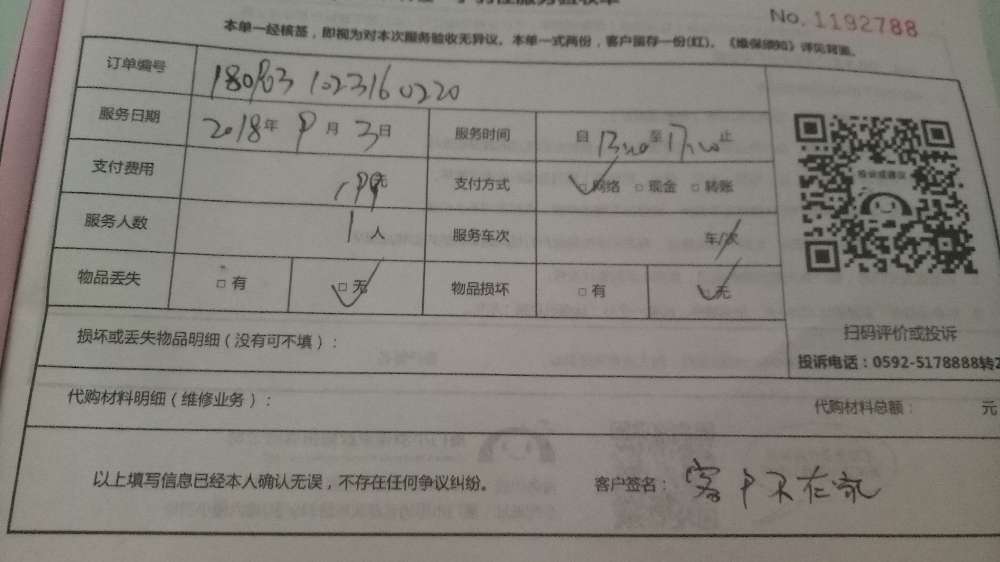 No. 1192788
本单一经核签，即视为对本次服务验收无异议。本单一式两份，客户留存一份(红)。《维保须知》详见背面。
订单编号
服务日期 2018年 8月 3日 服务时间 自13:00至17:00止
支付费用 199元 支付方式 □网络 □现金 □转账
服务人数 1人 服务车次 车/次
物品丢失 □有 □无 物品损坏 □有 □无
投诉或建议
扫码评价或投诉
投诉电话：0592-5178888转2
损坏或丢失物品明细（没有可不填）：
代购材料明细（维修业务）： 代购材料总额： 元
以上填写信息已经本人确认无误，不存在任何争议纠纷。 客户签名： 客户不在家